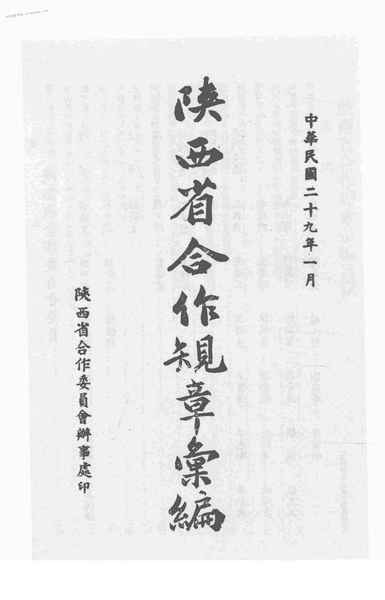 中華民國二十九年一月
陝西省合作規章彙編
陝西省合作委員會辦事處印